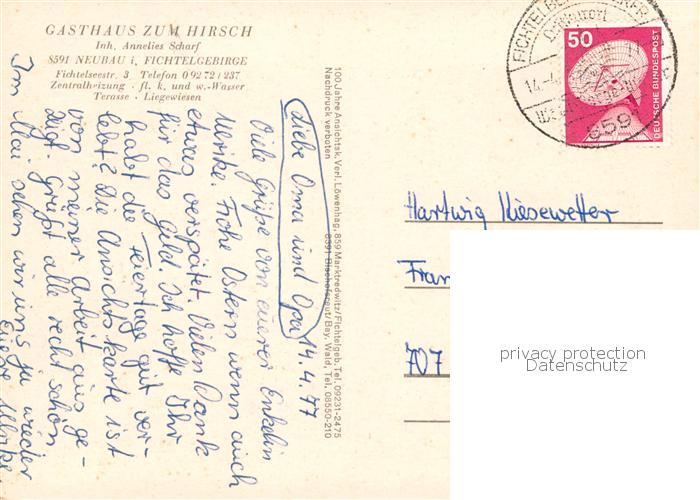 GASTHAUS ZUM HIRSCH
Inh. Annelies Scharf
8591 NEUBAU i. FICHTELGEBIRGE
Fichtelseestr. 3 Telefon 0 92 72 / 237
Zentralheizung · fl. k. und w.-Wasser
Terasse · Liegewiesen
100 Jahre Ansichtsk.Verl. Löwenhag, 859 Marktredwitz/Fichtelgeb. Tel. 09231-2475
8391 Bischofsreut/Bay. Wald, Tel. 08550-210
Nachdruck verboten
14.4.77
Liebe Oma und Opa
Viele Grüße von eurer Enkelin
Ulrike. Frohe Ostern wenn auch
etwas verspätet. Vielen Dank
für das Geld. Ich hoffe Ihr
habt die Feiertage gut ver-
lebt? Die Ansichtskarte ist
von meiner Arbeit aus ge-
. Grüßt alle recht schön
Im Mai sehen wir uns ja wieder
Eure
50
DEUTSCHE BUNDESPOST
FICHTELBERG
14.-4.
859
Hartwig Kiesewetter
Fran
707
privacy protection
Datenschutz